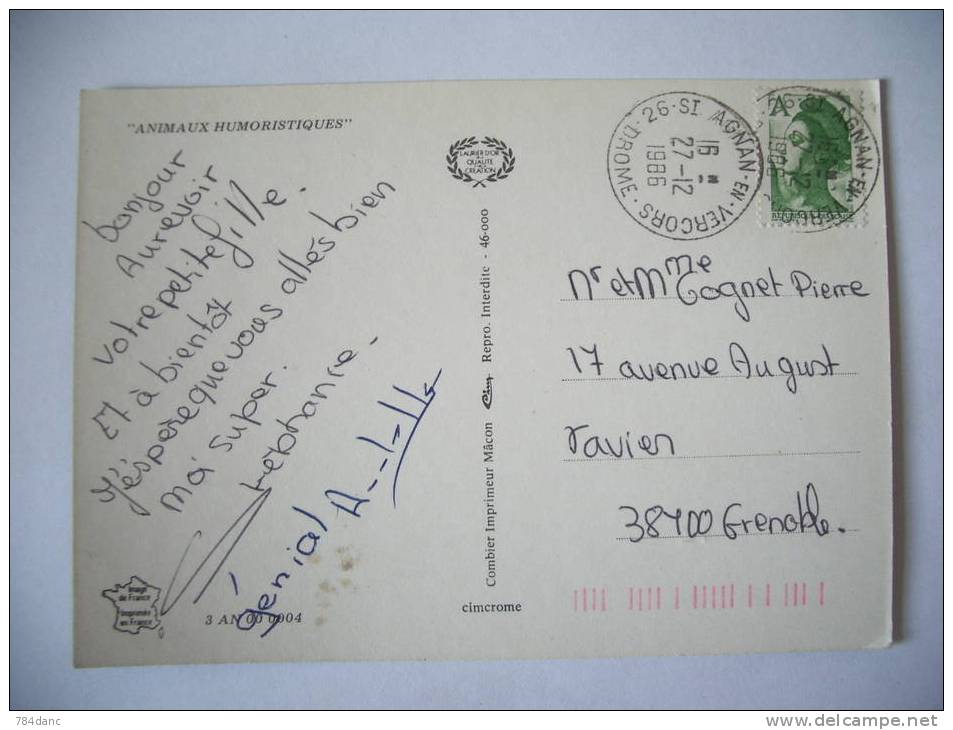 "ANIMAUX HUMORISTIQUES"
bonjour
Aurevoir
Votre petite fille.
Et à bientôt
J'éspère que vous allés bien
moi super.
Stéphanie.
génial
Image
de France
Imprimée
en France
3 AN 00 0004
LAURIER D'OR
QUALITÉ
CRÉATION
Combier Imprimeur Mâcon Cim Repro. Interdite - 46-000
cimcrome
26-ST AGNAN-EN-VERCORS
DROME
16 H
27-12
1986
A
Mr et Mme Cognet Pierre
17 avenue August
ravier
38400 Grenoble.
784danc
www.delcampe.net